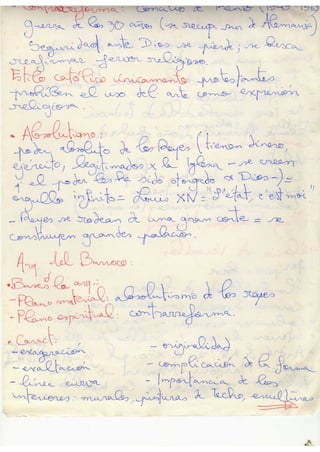 Contrarreforma: Concilio de Trento (1545-1563)
guerra de los 30 años (se recup sur de Alemania)
Seguridad ante Dios se pierde; se busca
reafirmar fervor religioso.
Estilo católico únicamente protestantes
prohíben el uso del arte como expresión
religiosa.
• Absolutismo:
- poder absoluto de los Reyes (tienen dinero,
ejército, legitimados x la Iglesia - se creen
q' el poder les ha sido otorgado x Dios -) =
orgullo infinito = Louis XIV = "L'état, c'est moi"
- Reyes se rodean de una gran corte = se
construyen grandes palacios.
Arq. del Barroco:
• Bases d la arq.:
- Plano material: absolutismo d los reyes
- Plano espiritual: contrarreforma.
• Caract:
- exageración - originalidad
- exaltación - complicación d la forma
- línea curva - Importancia de los
interiores: murales, pinturas de techo, esculturas